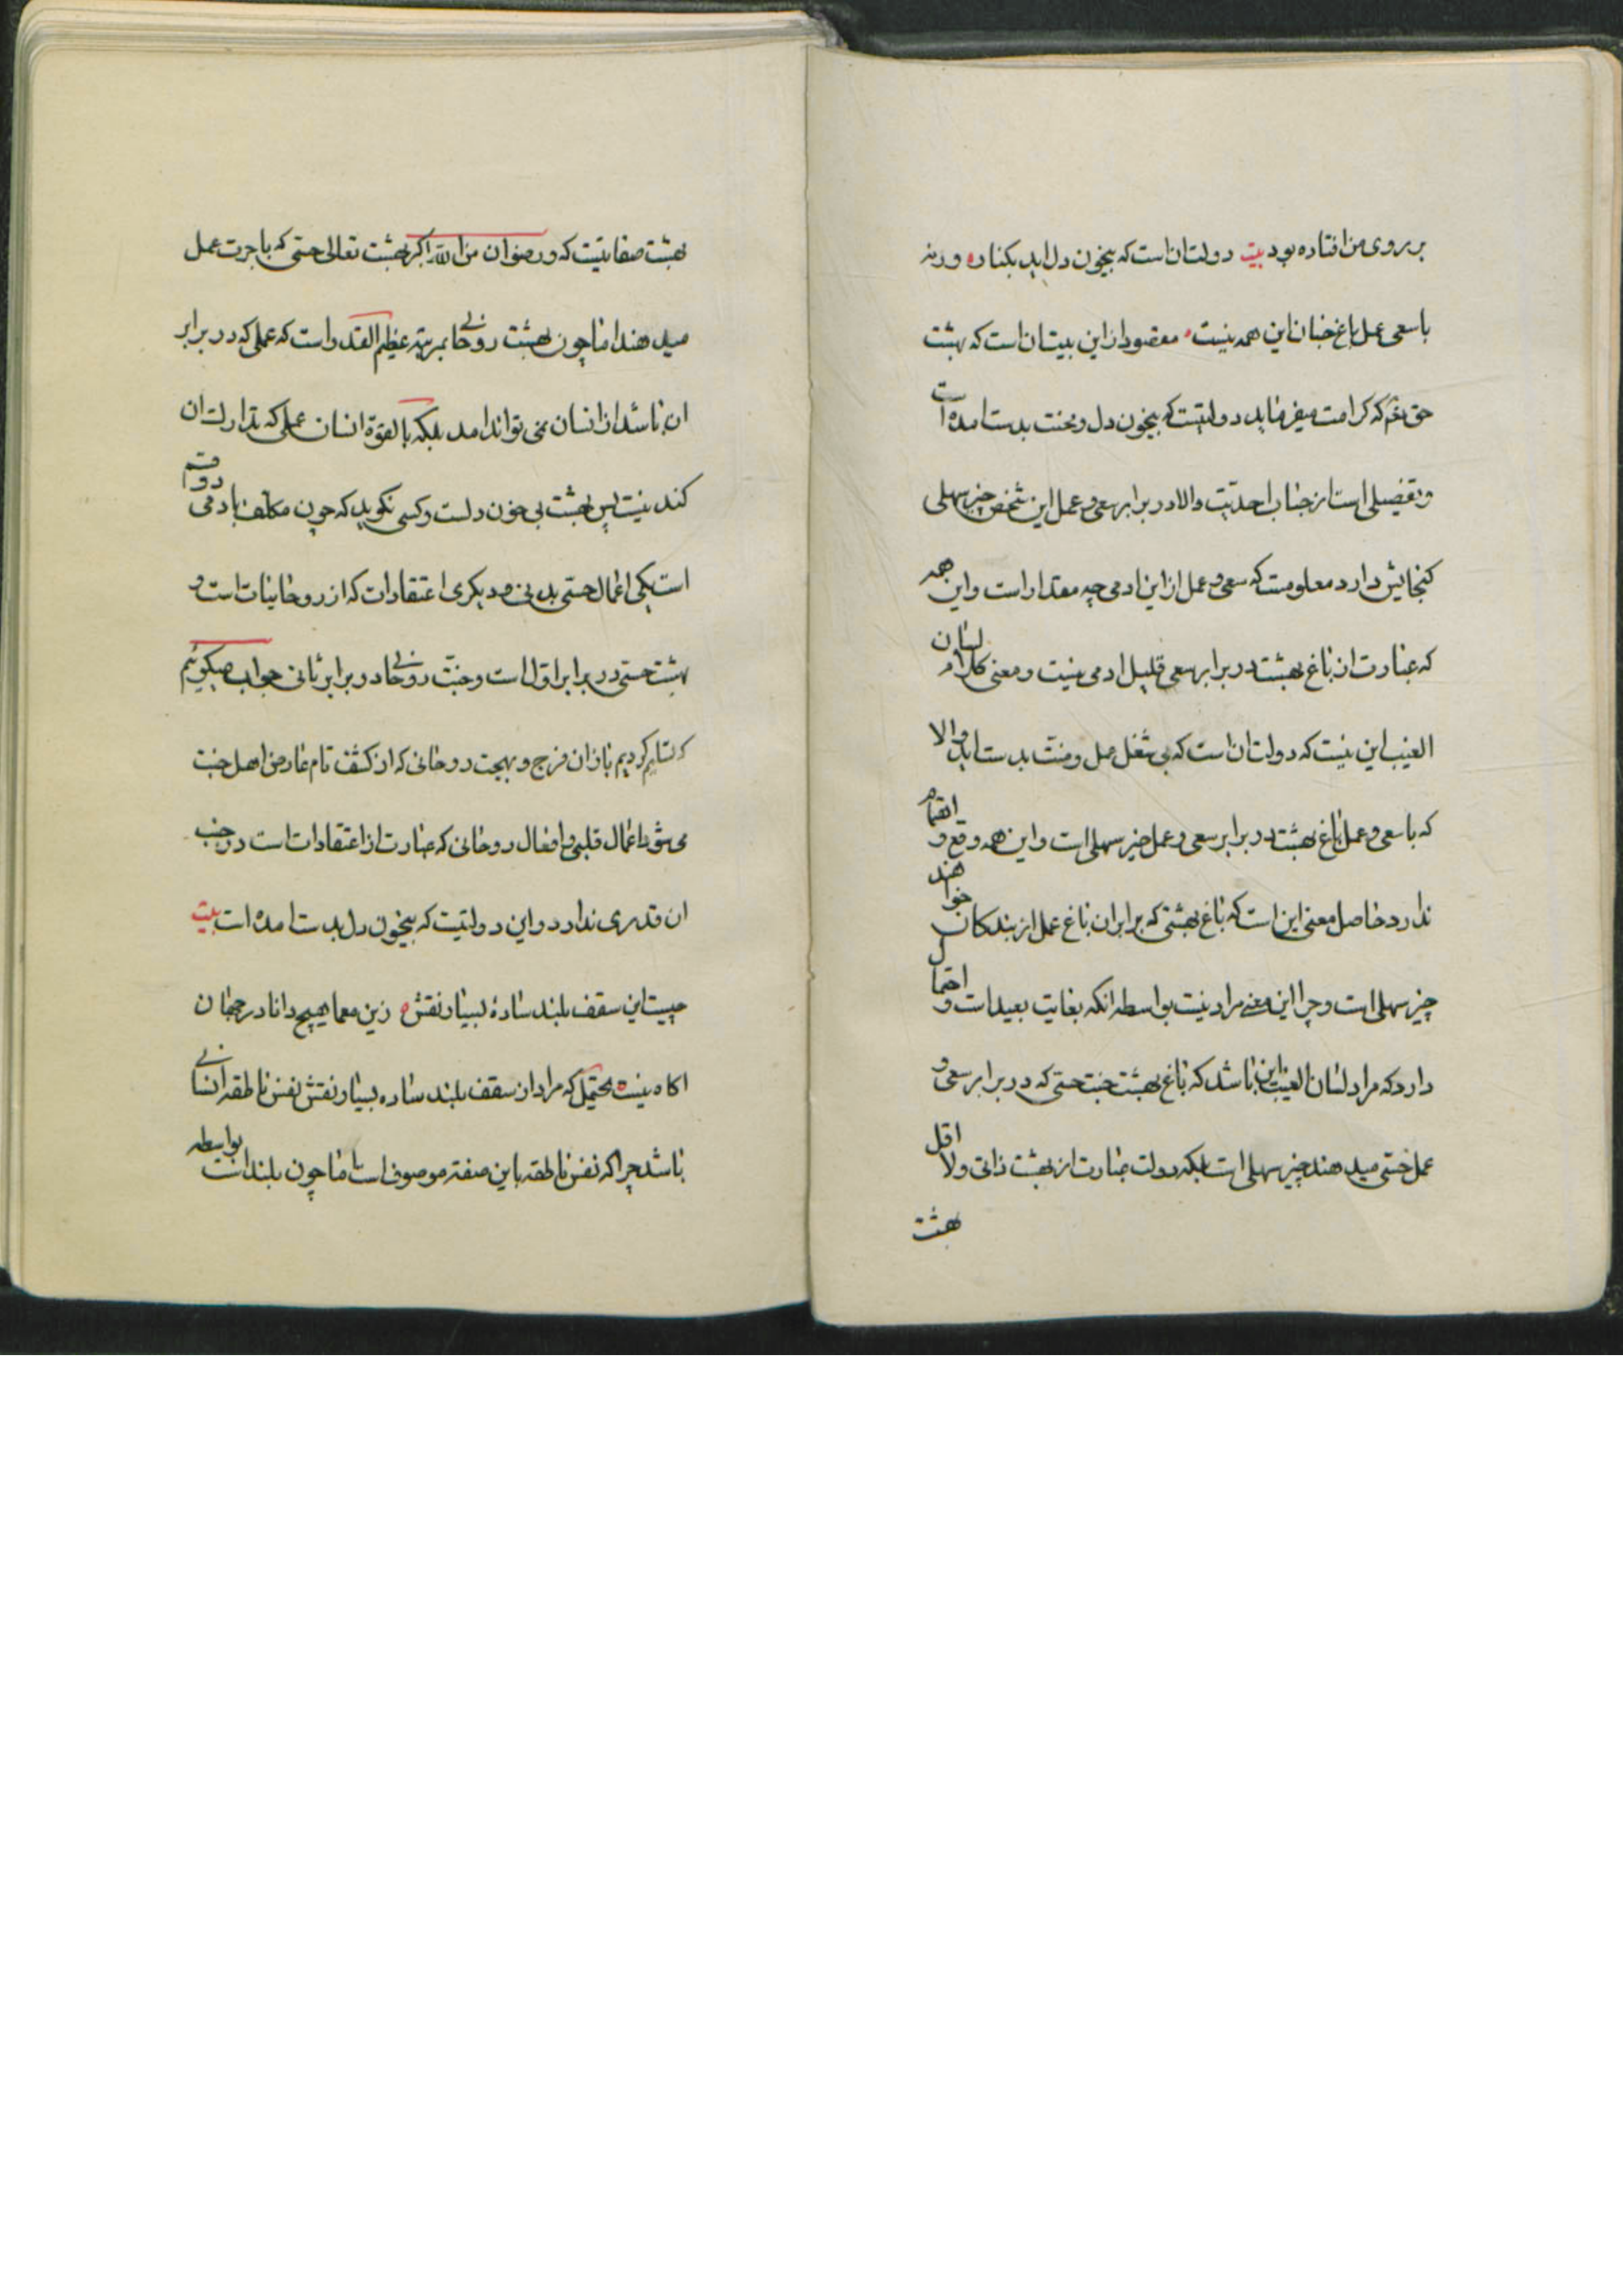 بر روی من افتاده بود بیت دولت ان است که بیخون دل اید بکناره ورنه
با سعی عمل باغ جنان این همه نیست مقصود از این بیت ان است که بهشت
حق که کرامت میفرماید دولتیست که بیخون دل و محنت بدست امده است
و تفضیلی است از جناب احدیت والا در برابر سعی و عمل این شخص چیز سهلی
کنجایش دارد معلومست که سعی و عمل از این ادمی چه مقدار است و این همه
که عبارت از باغ بهشت در برابر سعی قلیل ادمی نیست و معنی کلام لسان
الغیب این نیست که دولت ان است که بی شغل عمل و منت بدست اید والا
که با سعی و عمل باغ بهشت در برابر سعی و عمل چیز سهلی است و این همه وقع و
ندارد حاصل معنی این است که باغ بهشتی که برابر ان باغ عمل از بندکان خواهند
چیز سهلی است و چرا این معنی مراد نیست بواسطه انکه بغایت بعید است و احتمال
دارد که مراد لسان الغیب این باشد که باغ بهشت جنت حسی که در برابر سعی و
عمل حسی میدهند چیز سهلی است بلکه دولت عبارت از بهشت ذاتی ولا اقل
بهشت
بهشت صفاتیست که و رضوان من الله اکبر بهشت تعالی حسی که با جرت عمل
میدهند اما چون بهشت روحانی بمرتبه عظیم القدر است که عملی که در برابر
ان باشد از انسان نمی تواند امد بلکه بالقوة انسان عملی که تدارک ان
کند نیست پس بهشت بی خون دلست و کسی نکوید که چون مکلف بادمی دو قسم
است یکی اعمال حسی بدنی و دیکری اعتقادات که از روحانیات است و
بهشت حسی در برابر اول است و جنت روحانی در برابر ثانی جواب میکوئیم
که تسلیم کردیم باز ان فرج و بهجت روحانی که از کشف تام عارض اهل جنت
می شود اعمال قلبی و افعال روحانی که عبارت از اعتقادات است در جنب
ان قدری ندارد و این دولتیست که بیخون دل بدست امده است بیت
چیست این سقف بلند سادهٔ بسیار نقش زین معما هیچ دانا در جهان
اکاه نیست یحتمل که مراد از سقف بلند ساده بسیار نقش نفس ناطقه انسانی
باشد چرا که نفس ناطقه باین صفة موصوف است اما چون بلند است بواسطه